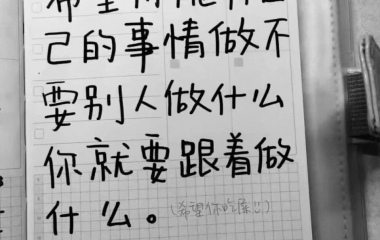 己的事情做不
要别人做什么
你就要跟着做
什么。(希望你吃屎!!)